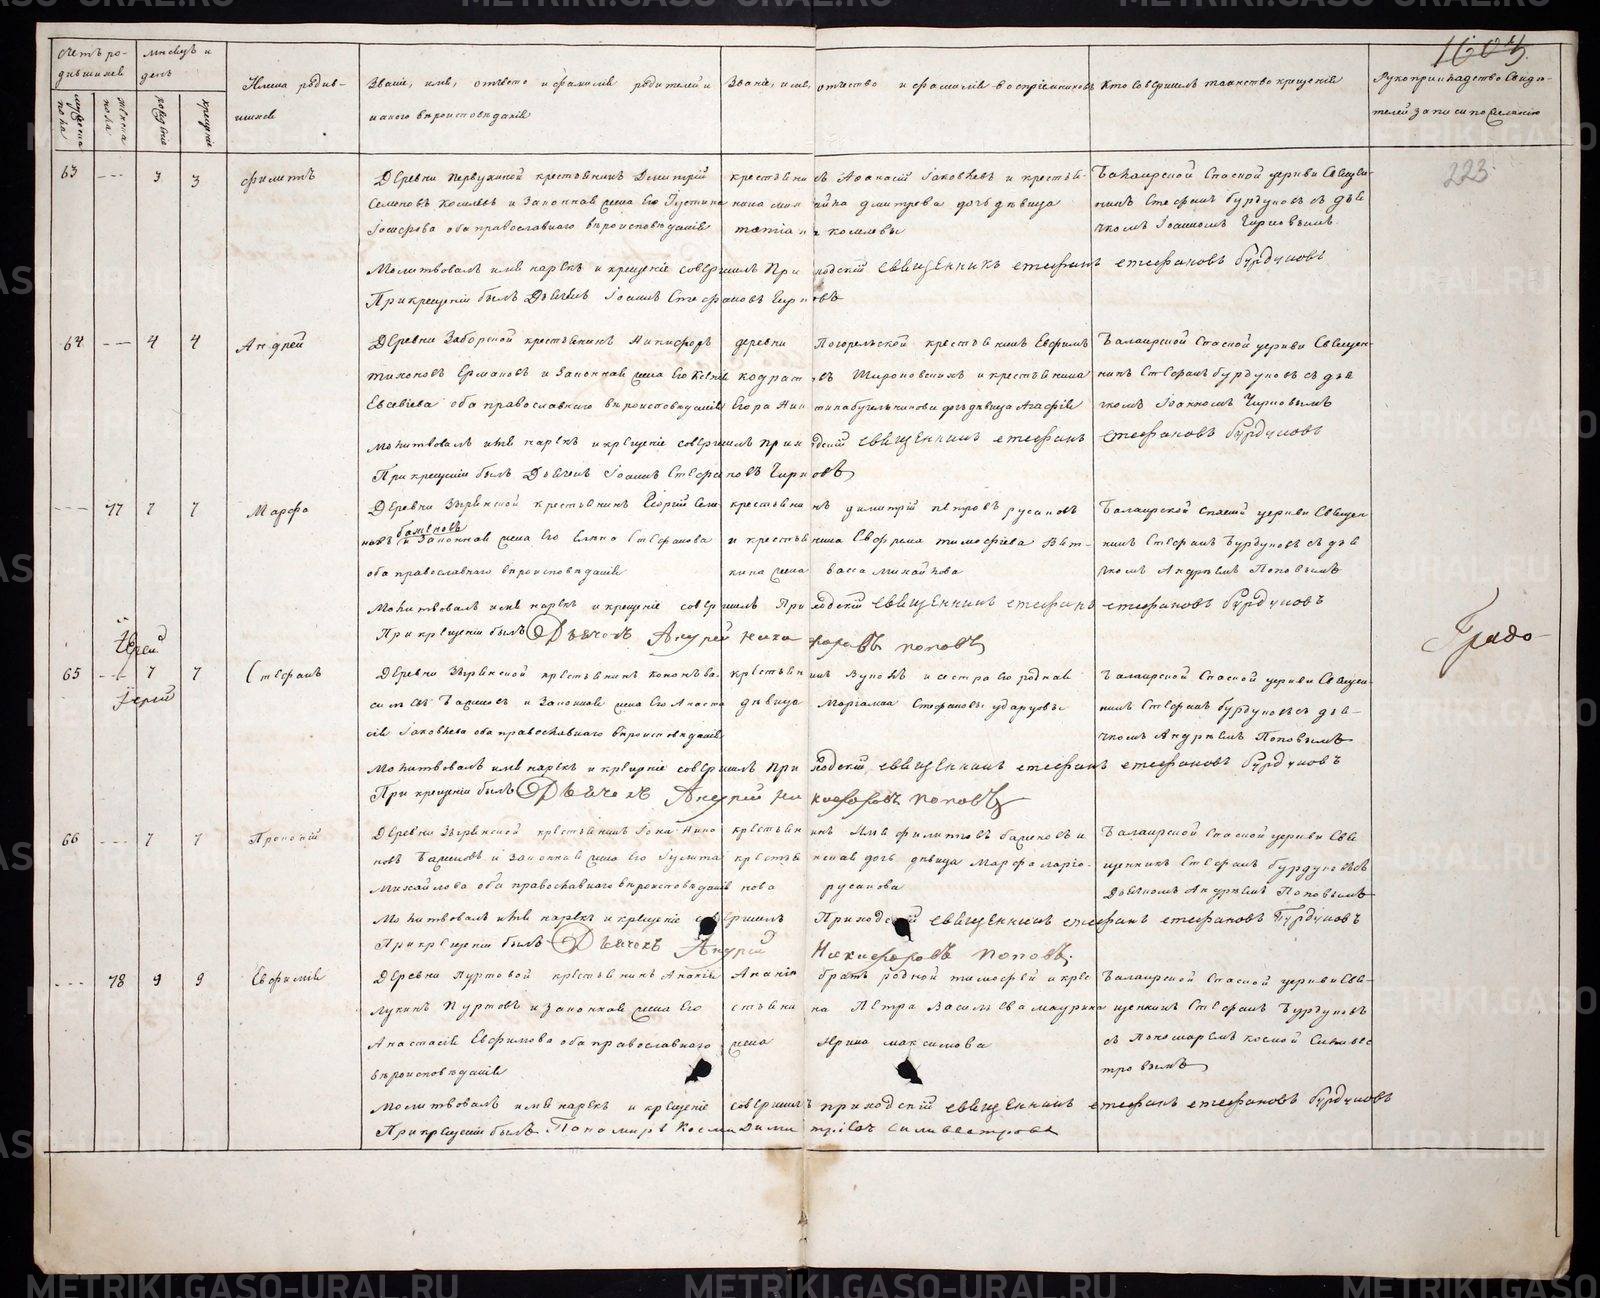 1604.
223.
Счетъ ро-
дившихся
мужеска пола
женска пола
Мѣсяцъ и
день
рожденія
крещенія
Имена родив-
шихся
Званіе, имя, отчество и фамилія родителей и
какого вѣроисповѣданія
Званіе, имя, отчество и фамилія воспріемниковъ
Кто совершалъ таинство крещенія
Рукоприкладство свидѣ-
телей записи по желанію
63 --- 3 3 Филиппъ
Деревни Первухиной крестьянинъ Димитрій
Семеновъ Киселевъ и законная жена его Іустина
Іосифова оба православнаго вѣроисповѣданія
крестьянинъ Аѳанасій Іаковлевъ и крестья-
Димитрева дочь дѣвица
Киселевы
Балаирской Спасской церкви Священ-
никъ Стефанъ Бурдуковъ съ дья
чкомъ Іоанномъ Чирковымъ
Молитвовалъ имя нарекъ и крещеніе совершилъ Приходскій Священникъ Стефанъ Стефановъ Бурдуковъ
При крещеніи былъ Дьячекъ Іоаннъ Стефановъ Чирковъ
64 --- 4 4 Андрей
Деревни Заборской крестьянинъ Никифоръ
Тихоновъ Ермаковъ и законная жена его Ксенія
Евсевіева оба православнаго вѣроисповѣданія
деревни Погорельской крестьянинъ Евфимъ
Кодратовъ Широковскихъ и крестьянина
Егора дочь дѣвица Агафія
Балаирской Спасской церкви Священ-
никъ Стефанъ Бурдуковъ съ дья
чкомъ Іоанномъ Чирковымъ
Молитвовалъ имя нарекъ и крещеніе совершилъ Приходскій Священникъ Стефанъ Стефановъ Бурдуковъ
При крещеніи былъ Дьячекъ Іоаннъ Стефановъ Чирковъ
--- 77 7 7 Марфа
Деревни Зырянской крестьянинъ Георгій Семе
новъ Баженовъ и законная жена его Елена Стефанова
оба православнаго вѣроисповѣданія
крестьянинъ Димитрій Петровъ Русаковъ
и крестьянина Ефрема Тимофеева Вят-
кина жена Васса Михайлова
Балаирской Спасской церкви Священ-
никъ Стефанъ Бурдуковъ съ дья
чкомъ Андреемъ Поповымъ
Молитвовалъ имя нарекъ и крещеніе совершилъ Приходскій Священникъ Стефанъ Стефановъ Бурдуковъ
При крещеніи былъ Дьячекъ Андрей Никифоровъ Поповъ
Іерей
Градо-
65 --- 7 7 Стефанъ
Іерей
Деревни Зырянской крестьянинъ Кононъ Ва-
сильевъ Баженовъ и законная жена его Анаста
сія Іаковлева оба православнаго вѣроисповѣданія
крестьянинъ Вуколъ и сестра его родная
дѣвица Маріамна Стефановы Ударцовы
Балаирской Спасской церкви Священ-
никъ Стефанъ Бурдуковъ съ дья-
чкомъ Андреемъ Поповымъ
Молитвовалъ имя нарекъ и крещеніе совершилъ Приходскій Священникъ Стефанъ Стефановъ Бурдуковъ
При крещеніи былъ Дьячекъ Андрей Никифоровъ Поповъ
66 --- 7 7 Прокопій
Деревни Зырянской крестьянинъ Іона
Баженовъ и законная жена его Іулита
Михайлова оба православнаго вѣроисповѣданія
крестьянинъ Филипповъ Баженовъ и
дочь дѣвица Марфа
Русакова
Балаирской Спасской церкви Свя
щенникъ Стефанъ Бурдуковъ съ
Дьячкомъ Андреемъ Поповымъ
Молитвовалъ имя нарекъ и крещеніе совершилъ Приходскій Священникъ Стефанъ Стефановъ Бурдуковъ
При крещеніи былъ Дьячекъ Андрей Никифоровъ Поповъ.
--- 78 9 9 Евфимія
Деревни Пуртовой крестьянинъ Ананія
Лукинъ Пуртовъ и законная жена его
Анастасія Евфимова оба православнаго
вѣроисповѣданія
Ананія братъ родной Тимофей и кре
стьянина Петра Васильева Маурина
жена Ирина Максимова
Балаирской Спасской церкви Свя-
щенникъ Стефанъ Бурдуковъ
съ пономаремъ Космой Сильвес
тровымъ
Молитвовалъ имя нарекъ и крещеніе совершилъ приходскій Священникъ Стефанъ Стефановъ Бурдуковъ
При крещеніи былъ Пономарь Косма Димитріевъ Сильвестровъ
METRIKI.GASO-URAL.RU